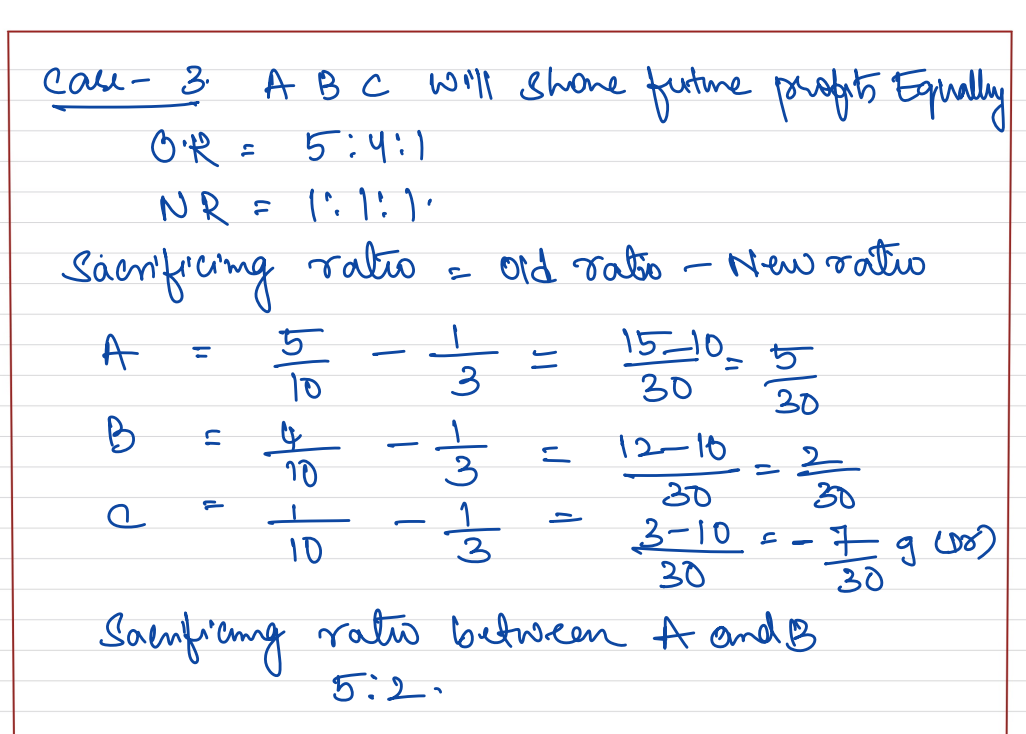 Case - 3. A B C will share future profits Equally
O.R = 5:4:1
NR = 1:1:1.
Sacrificing ratio = old ratio - New ratio
A = 5/10 - 1/3 = 15-10/30 = 5/30
B = 4/10 - 1/3 = 12-10/30 = 2/30
C = 1/10 - 1/3 = 3-10/30 = -7/30 g (or)
Sacrificing ratio between A and B
5:2.